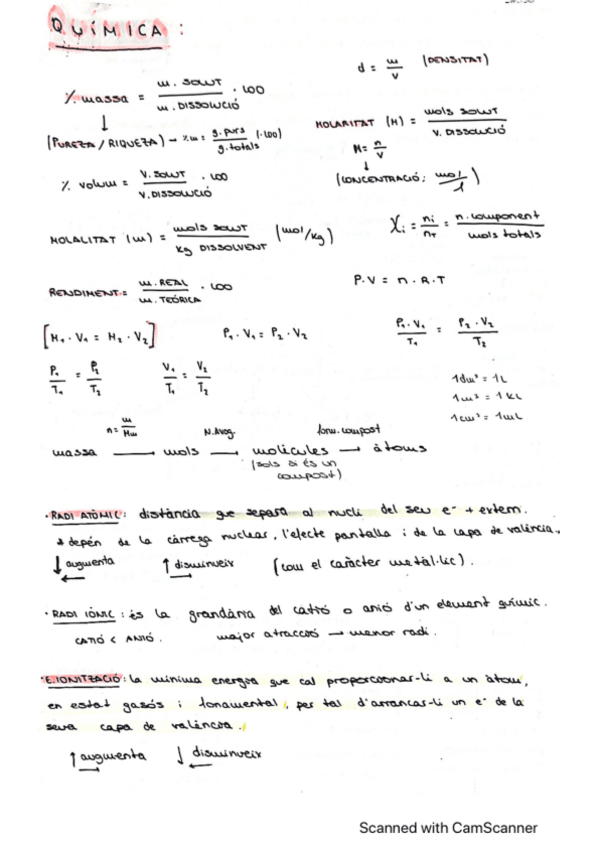 QUÍMICA:
% massa = m. SOLUT / m. DISSOLUCIÓ · 100
d = m / V (DENSITAT)
(PUREZA / RIQUEZA) → %m = g. purs / g. totals (·100)
MOLARITAT (M) = mols SOLUT / V. DISSOLUCIÓ
M = n / V
(CONCENTRACIÓ: mol / l)
% volum = V. SOLUT / V. DISSOLUCIÓ · 100
MOLALITAT (m) = mols SOLUT / kg DISSOLVENT (mol/kg)
Xi = ni / nT = n. component / mols totals
RENDIMENT = m. REAL / m. TEÓRICA · 100
P·V = n·R·T
[M1 · V1 = M2 · V2]
P1 · V1 = P2 · V2
P1 · V1 / T1 = P2 · V2 / T2
P1 / T1 = P2 / T2
V1 / T1 = V2 / T2
1dm³ = 1L
1m³ = 1kL
1cm³ = 1mL
n = m / Mm
N. Avog.
form. compost
massa → mols → molècules → àtoms
(sols si és un
compost)
· RADI ATÒMIC: distància que separa al nucli del seu e⁻ + extern.
* depén de la càrrega nuclear, l'efecte pantalla i de la capa de valència.
↓ augmenta ← ↑ disminueix → (com el caràcter metàl·lic).
· RADI IÒNIC: és la grandària del catió o anió d'un element químic.
CATIÓ < ANIÓ. major atracció → menor radi.
· E. IONITZACIÓ: la mínima energia que cal proporcionar-li a un àtom,
en estat gasós i fonamental, per tal d'arrancar-li un e⁻ de la
seua capa de valència.
↑ augmenta → ↓ disminueix ←
Scanned with CamScanner